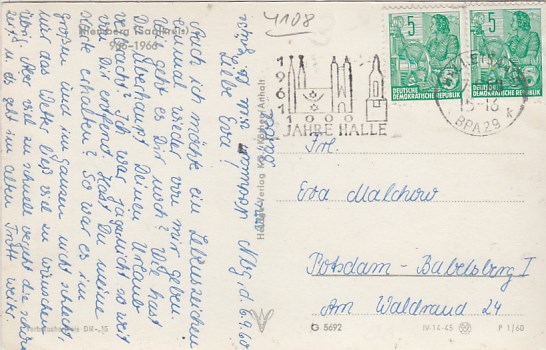 4108
Petersberg (Saalkreis)
966-1966
Nbg, d. 6.9.60
Liebe Eva!
Auch ich möchte ein Lebenszeichen
einmal wieder von mir geben.
Wie geht es Dir noch? Wie hast
Du überhaupt Deinen Urlaub
verbracht? Ich war ja gar nicht so weit
von Dir entfernt. Hast Du meine
Karte erhalten? So war es im
großen und im Ganzen nicht schlecht,
nur das Wetter ließ viel zu wünschen
übrig. Nur viel zu schnell vergeht die schöne
Zeit u. es geht im alten Trott weiter.
Verbraucherpreis DM -,15
1961
1000
JAHRE HALLE
5
DEUTSCHE
DEMOKRATISCHE REPUBLIK
5
DEUTSCHE
DEMOKRATISCHE REPUBLIK
BPA 29
Frl.
Eva Malchow
Potsdam-Babelsberg I
Am Waldrand 24
G 5692
IV-14-45
P 1/60